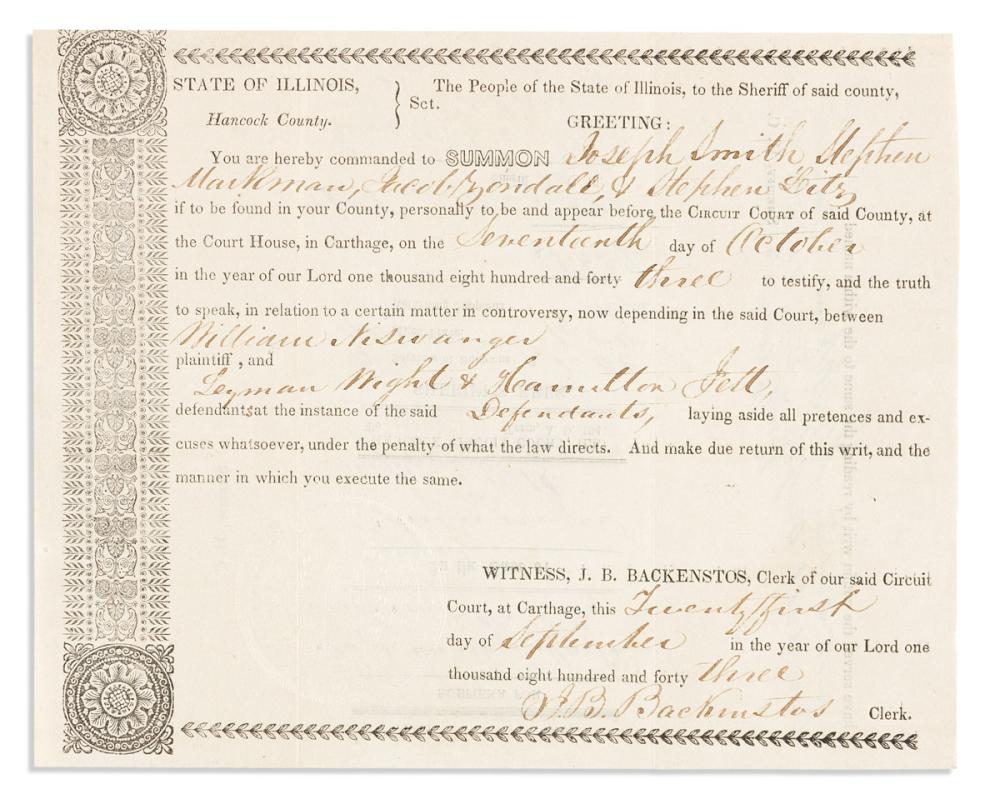 STATE OF ILLINOIS,
Hancock County.
Sct.
The People of the State of Illinois, to the Sheriff of said county,
GREETING:
You are hereby commanded to SUMMON Joseph Smith Stephen
Markman, Jacob Yondall, & Stephen Litz
if to be found in your County, personally to be and appear before the CIRCUIT COURT of said County, at
the Court House, in Carthage, on the Seventeenth day of October
in the year of our Lord one thousand eight hundred and forty three to testify, and the truth
to speak, in relation to a certain matter in controversy, now depending in the said Court, between
William Niswanger
plaintiff , and
Leyman Wight & Hamilton Jett,
defendants at the instance of the said Defendants, laying aside all pretences and ex-
cuses whatsoever, under the penalty of what the law directs. And make due return of this writ, and the
manner in which you execute the same.
WITNESS, J. B. BACKENSTOS, Clerk of our said Circuit
Court, at Carthage, this Twenty first
day of September in the year of our Lord one
thousand eight hundred and forty three
J. B. Backenstos Clerk.